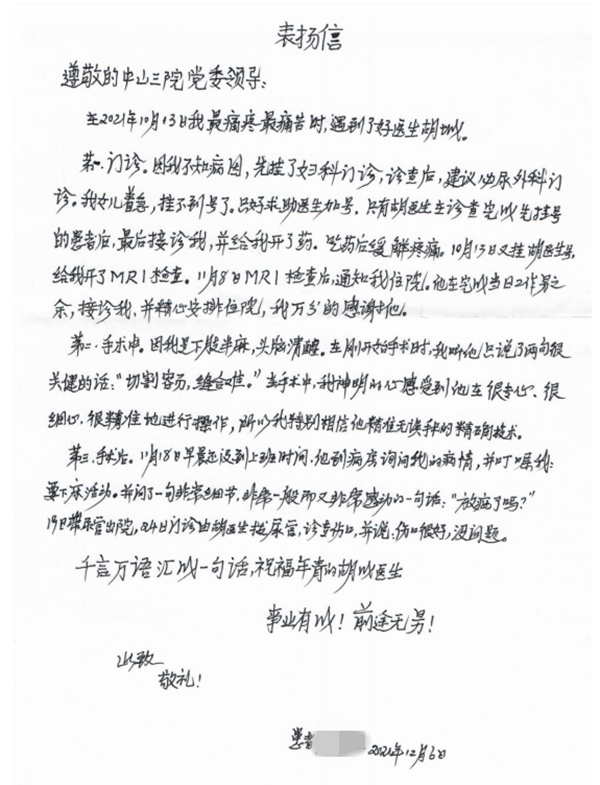 表扬信
尊敬的中山三院党委领导：
在2021年10月13日我最痛疼最痛苦时，遇到了好医生胡成。
第一.门诊。因我不知病因，先挂了妇科门诊，诊查后，建议泌尿外科门
诊。我女儿着急，挂不到号了。只好求助医生加号。只有胡医生在诊查完成先挂号
的患者后，最后接诊我，并给我开了药。吃药后缓解疼痛。10月13日又挂胡医生号，
给我开了MRI检查。11月8日MRI检查后，通知我住院。他在完成当日工作号之
余，接诊我，并精心安排住院，我万分的感谢他。
第二.手术中。因我是下肢半麻，头脑清醒。在刚开始手术时，我听他只说了两句很
关健的话："切割容易，缝合难。"当手术中，我神明的心感受到他在很专心、很
细心、很精准地进行操作，所以我特别相信他精准无误手术的精确技术。
第三.手术后。11月18日早晨还没到上班时间，他到病房询问我的病情，并叮嘱我：
要下床活动。并问了一句非常细节，非常一般而又非常感动的一句话："放疯了吗？"
19日带尿管出院，24日门诊由胡医生拔尿管，诊查伤口，并说：伤口很好，没问题。
千言万语汇成一句话，祝福年青的胡成医生
事业有成！前途无男！
此致
敬礼！
患者
2021年12月6日